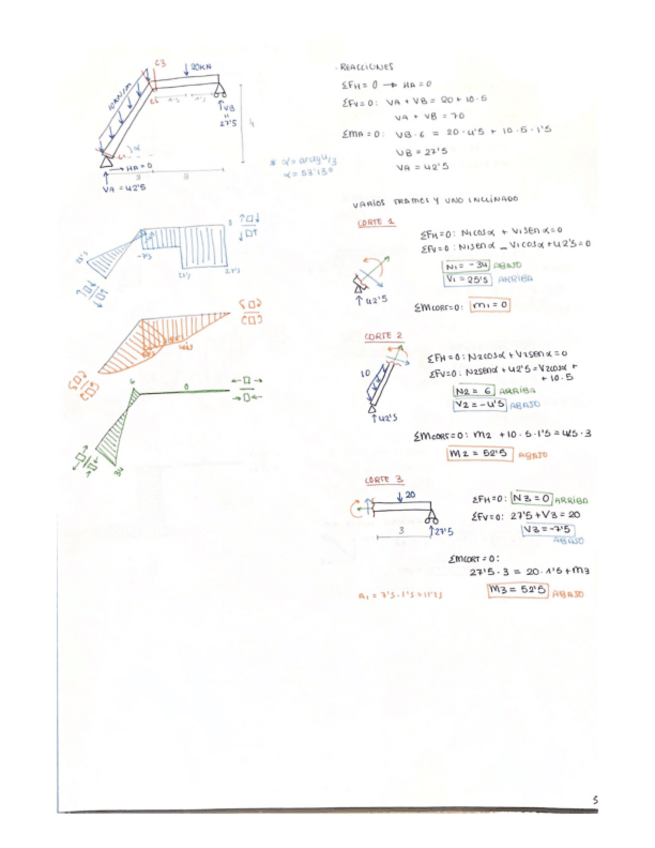 C3
20KN
10KN/M
VB
27'5
4
HA=0
VA = 42'5
3
3
* α = arctg 4/3
α = 53'13º
· REACCIONES
ΣFH = 0 → HA = 0
ΣFV = 0: VA + VB = 20 + 10·5
VA + VB = 70
ΣMA = 0: VB·6 = 20·4'5 + 10·5·1'5
VB = 27'5
VA = 42'5
VARIOS TRAMOS Y UNO INCLINADO
CORTE 1
ΣFH=0: N1cosα + V1senα = 0
ΣFV=0: N1senα - V1cosα + 42'5 = 0
N1 = -34 ABAJO
V1 = 25'5 ARRIBA
↑42'5
ΣMCORT=0: M1 = 0
CORTE 2
ΣFH=0: N2cosα + V2senα = 0
ΣFV=0: N2senα + 42'5 = V2cosα +
+ 10·5
10
N2 = 6 ARRIBA
V2 = -4'5 ABAJO
↑42'5
ΣMCORT=0: M2 + 10·5·1'5 = 42'5·3
M2 = 52'5 ABAJO
CORTE 3
↓20
ΣFH=0: N3 = 0 ARRIBA
ΣFV=0: 27'5 + V3 = 20
3
↑27'5
V3 = -7'5
ABAJO
ΣMCORT = 0:
27'5·3 = 20·1'5 + M3
A1 = 7'5·1'5 = 11'25
M3 = 52'5 ABAJO
-7'5
6
0
34
5